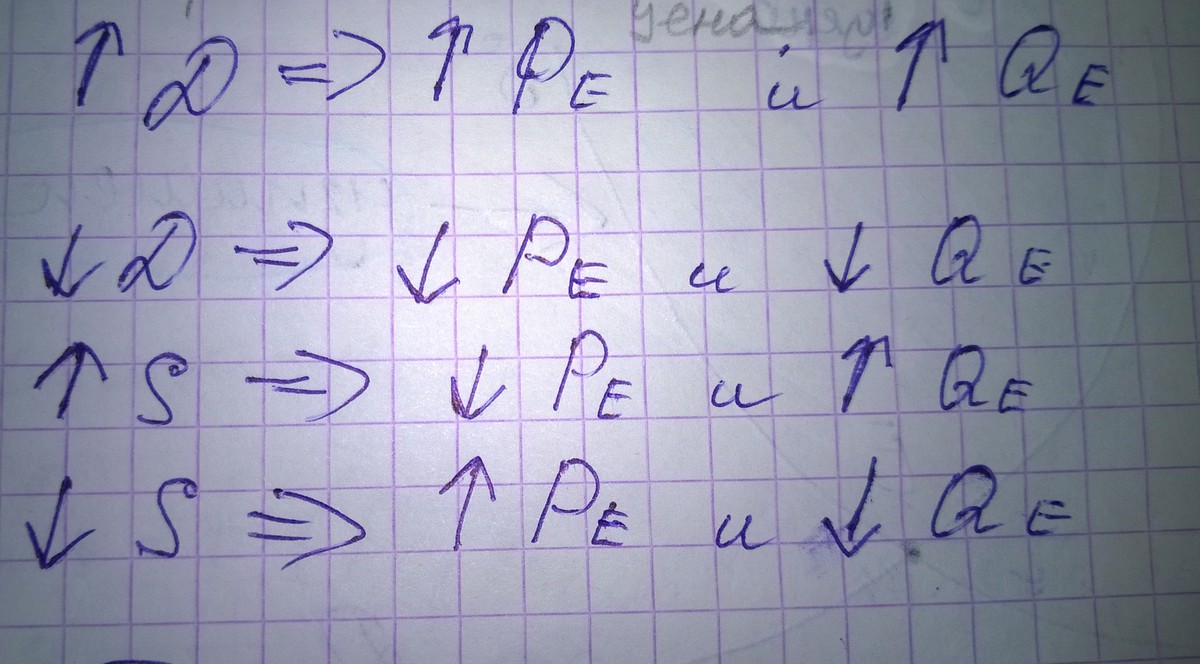 ↑ D => ↑ P_E и ↑ Q_E
↓ D => ↓ P_E и ↓ Q_E
↑ S => ↓ P_E и ↑ Q_E
↓ S => ↑ P_E и ↓ Q_E